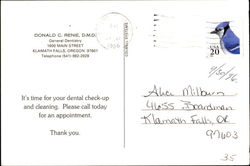 DONALD C. RENIE, D.M.D.
General Dentistry
1600 MAIN STREET
KLAMATH FALLS, OREGON 97601
Telephone (541) 882-2929
USA
20
9/30/96
It's time for your dental check-up
and cleaning. Please call today
for an appointment.
Thank you.
Alice Milburn
4655 Boardman
Klamath Falls, OR
97603
35